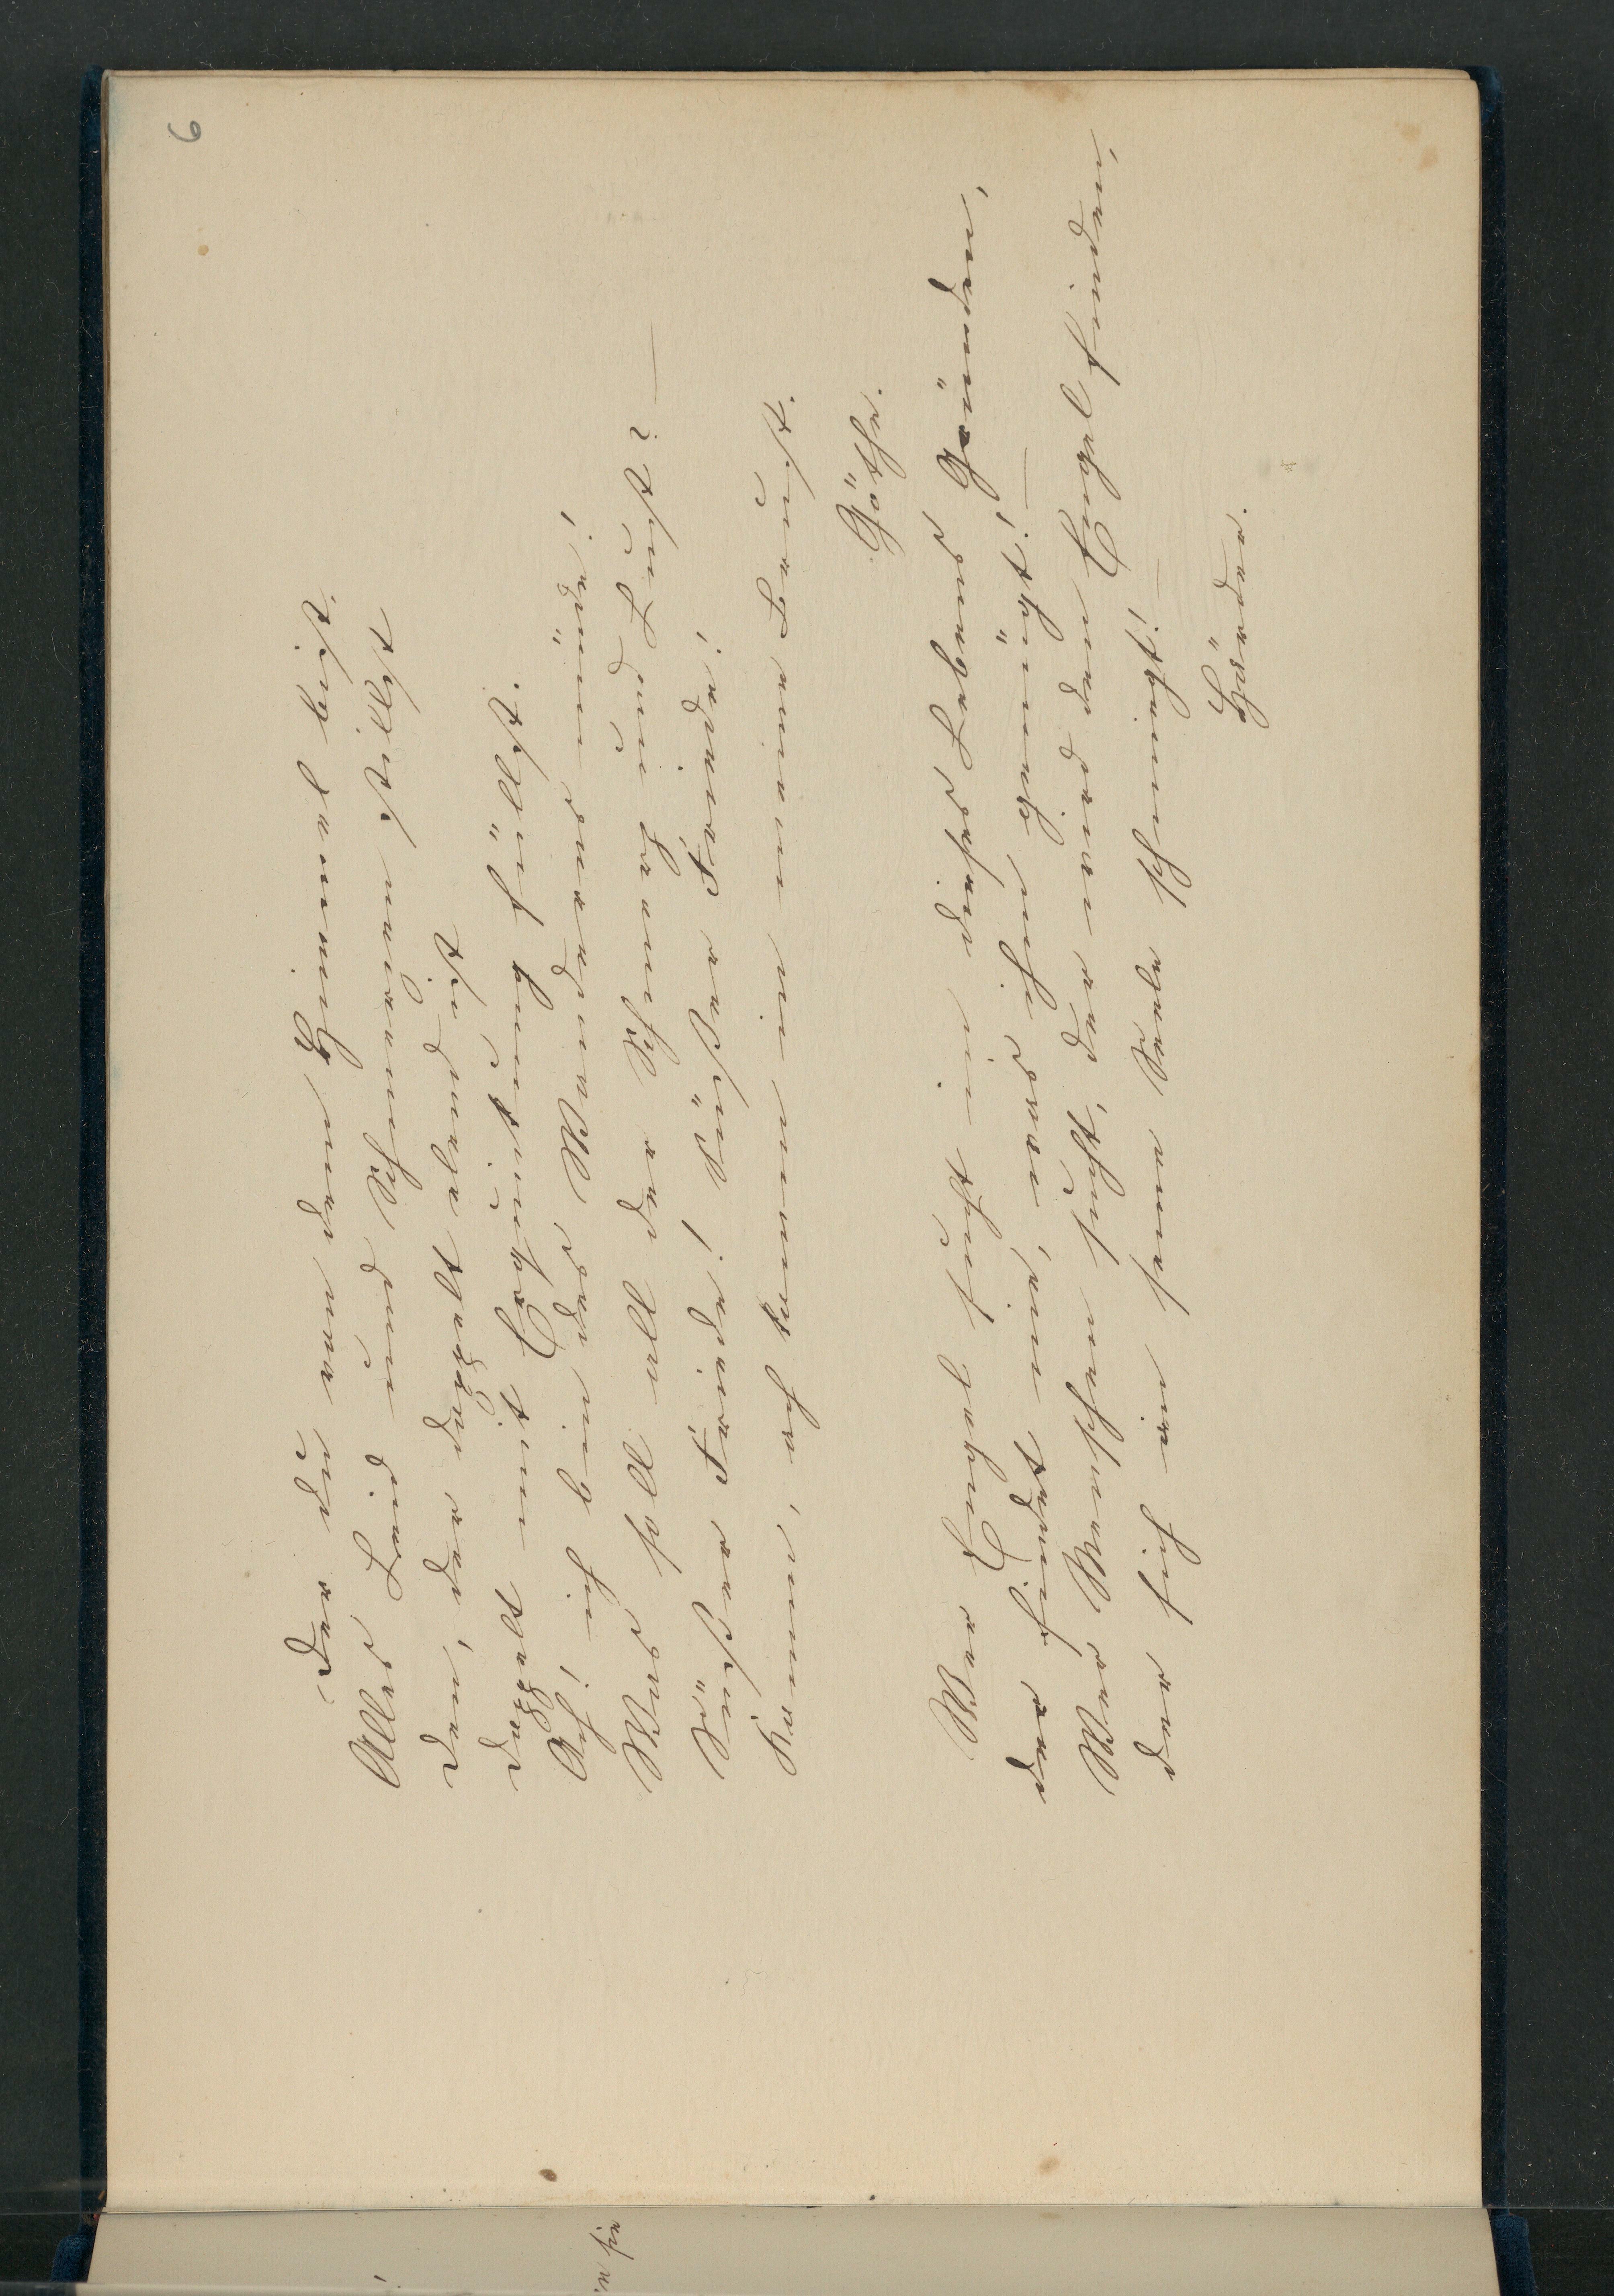 6
Der du von dem Himmel bist,
Alles Leid und Schmerzen stillst
Den, der doppelt elend ist,
Doppelt mit Erquickung füllst.
Ach! ich bin des Wanderns müde!
Was soll all der Schmerz und Lust? —
Süßer Friede! Süßer Friede!
Komm, ach komm in meine Brust.
Göthe.
Wer Engel sucht in dieses Lebens Gründen,
der findet nie, was ihm genügt! —
Wer Menschen sucht, der wird den Engel finden,
der sich an seine Seele schmiegt! —